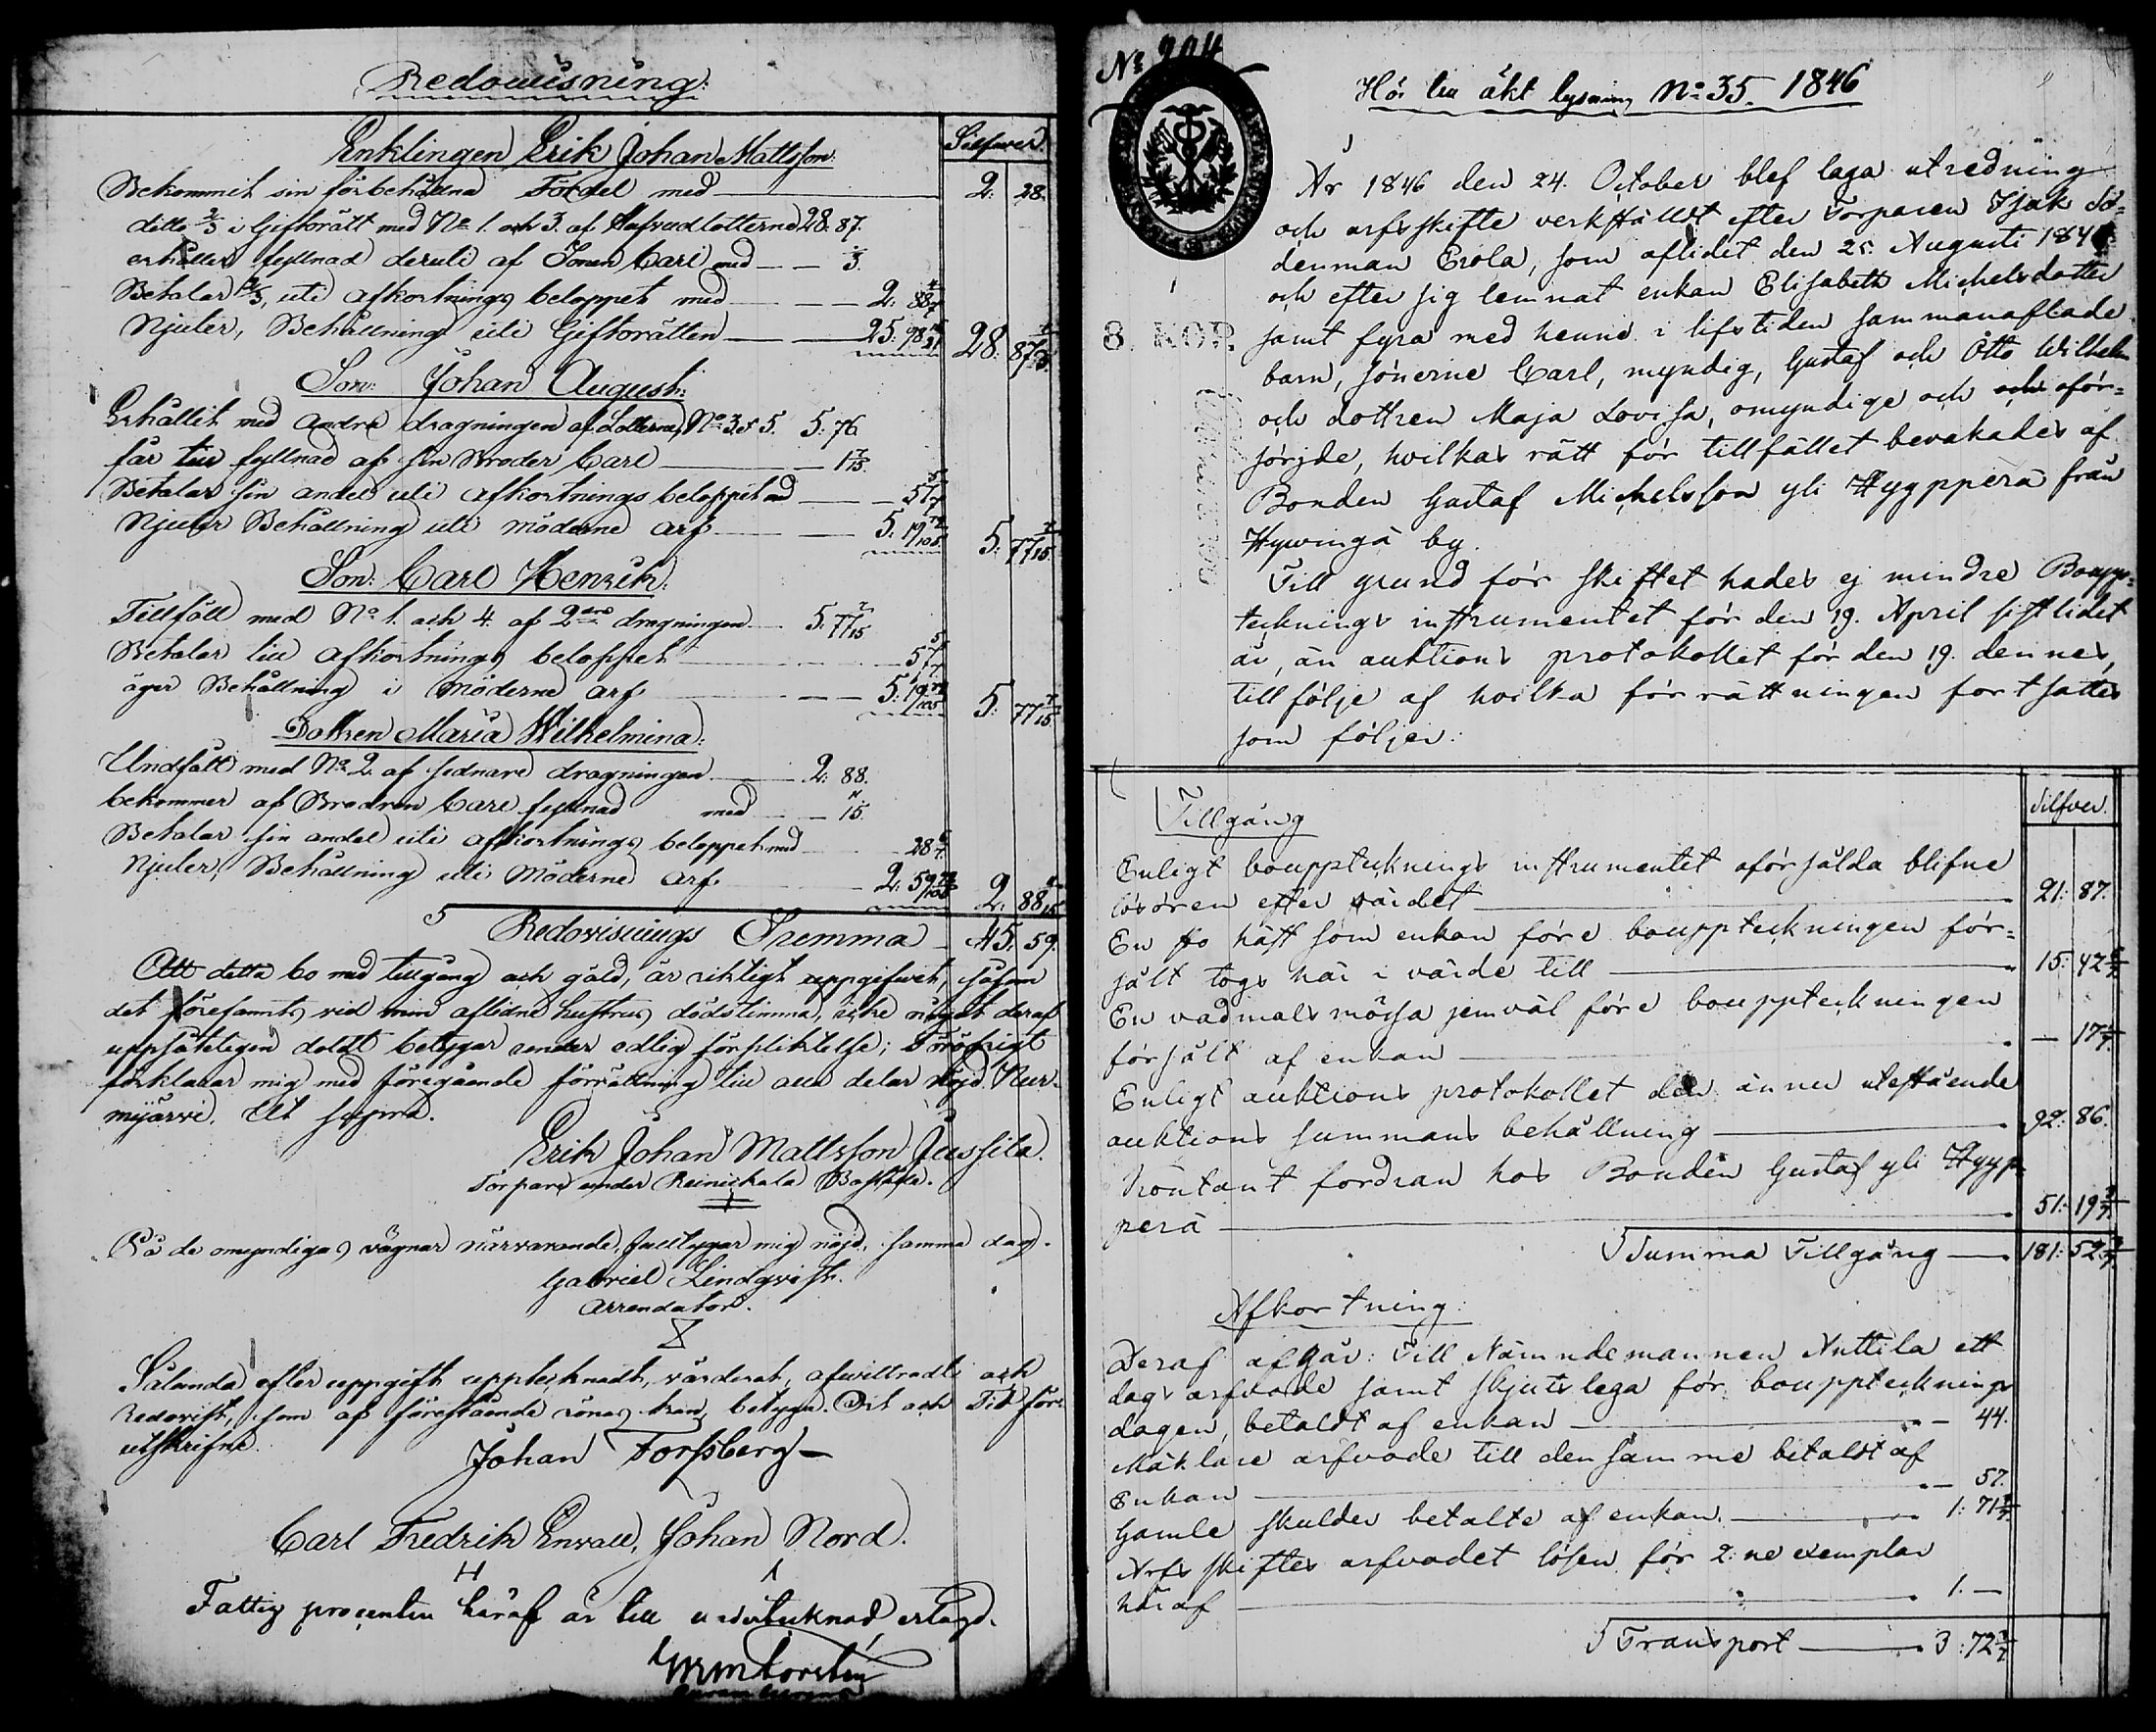 Redowisning:
Silfwer.
Enklingen Erik Johan Mattsson:
Bekommit sin förbehållna Fördel med — 2: 28.
ditto 2/3 i Giftorätt med No 1. och 3. af Hufvudlotterna 28. 87.
erhåller fyllnad deruti af Sonen Carl med — — 1/3.
Betalar 2/3, uti afkortnings beloppet med — — 2. 88 4/7
Njuter, Behållning uti Giftorätten — — 25: 98 16/21 28: 87 1/3.
Son: Johan August:
Erhållit med andra dragningen af Lotterne, No 3. & 5. 5: 76
får till fyllnad af sin Broder Carl — — 1 7/15.
Betalar sin andel uti afkortnings beloppet med — — 57 5/7
Njuter Behållning uti möderne arf — — 5. 19 79/105 5: 77 7/15.
Son: Carl Henrik:
Tillfäll med No 1. och 4. af 2dra dragningen — 5: 77 7/15
Betalar till afkortnings beloppet — — 57 5/7.
äger Behållning i Möderne arf — — 5. 19 79/105 5: 77 7/15
Dottren Maria Wilhelmina:
Undfått med No 2. af sednare dragningen — 2: 88.
bekommer af Brodren Carl fyllnad med — 11/15.
Betalar sin andel uti afkortnings beloppet med — 28 6/7.
Njuter, Behållning uti Möderne arf — 2. 59 2. 88 11/15
Redovisnings Summa — 45. 59.
Att detta bo med tillgång och gäld, är riktigt uppgifwet, såsom
det förefanns vid min aflidne hustrus dödstimma, icke något deraf
uppsåteligen doldt betygar under edlig förpliktelse; Föröfrigt
förklarar mig med föregående förrättning till alla delar nöjd. Nur-
mijärvi. Ut supra.
Erik Johan Mattsson Jussila.
Torpare under Reinikala Boställe.
På de omyndigas vägnar närvarande, fulltygar mig nöjd, samma dag.
Gabriel Lindqvist.
Arrendator.
Sålunda efter uppgift upptecknadt, värderat, afwittradt och
redovist, som af föreståndne rönas kan, betyga. Ort och Tid för-
utskrifne.
Johan Forssberg
Carl Fredrik Envall, Johan Nord.
Fattig procenten häraf är till undertecknad erlagd.
No 204
Hör till äkt lysning No 35. 1846
8 KOP.
År 1846 den 24. October blef laga utredning
och arfsskifte verkställdt efter Torparen Isak Sö-
denman Erola, som aflidit den 25. Augusti 184
och efter sig lemnat enkan Elisabeth Michelsdotter
samt fyra med henne i lifstiden sammanaflade
barn, sönerne Carl, myndig, Gustaf och Otto Wilhelm
och dottren Maja Lovisa, omyndige och och oför-
sörjde, hvilkas rätt för tillfället bevakades af
Bonden Gustaf Michelsson yli Hyyppärä från
Hyvingä by.
Till grund för skiftet hades ej mindre Boupp-
tecknings instrumentet för den 19. April sistlidet
år, än auktions protokollet för den 19. dennes,
till följe af hvilka förrättningen fortsattes
som följer:
Silfver.
Tillgång
Enligt bouppteknings instrumentet oförsålda blifne
lösören efter värdet — 21: 87.
En sto häst som enkan före bouppteckningen för-
sålt togs här i värde till — 15: 42 6/7
En vadmals mössa jemväl före bouppteckningen
försålt af enkan — — 17 1/7.
Enligt auktions protokollet den ännu utestående
auktions summans behållning — 92: 86.
Kontant fordran hos Bonden Gustaf yli Hyyp-
perä — 51: 19 2/7
Summa Tillgång — 181: 52 2/7
Afkortning:
Deraf afgår: Till Nämndemannen Nuttila ett
dags arfvode samt skjutslega för bouppteknings
dagen, betaldt af enkan — — 44.
Mäklare arfvode till den samme betaldt af
Enkan — — 57.
Gamle skulder betalte af enkan. — 1: 71 3/7
Arfs skiftes arfvodet lösen för 2:ne exemplar
häraf — 1. —
Transport — 3: 72 3/7